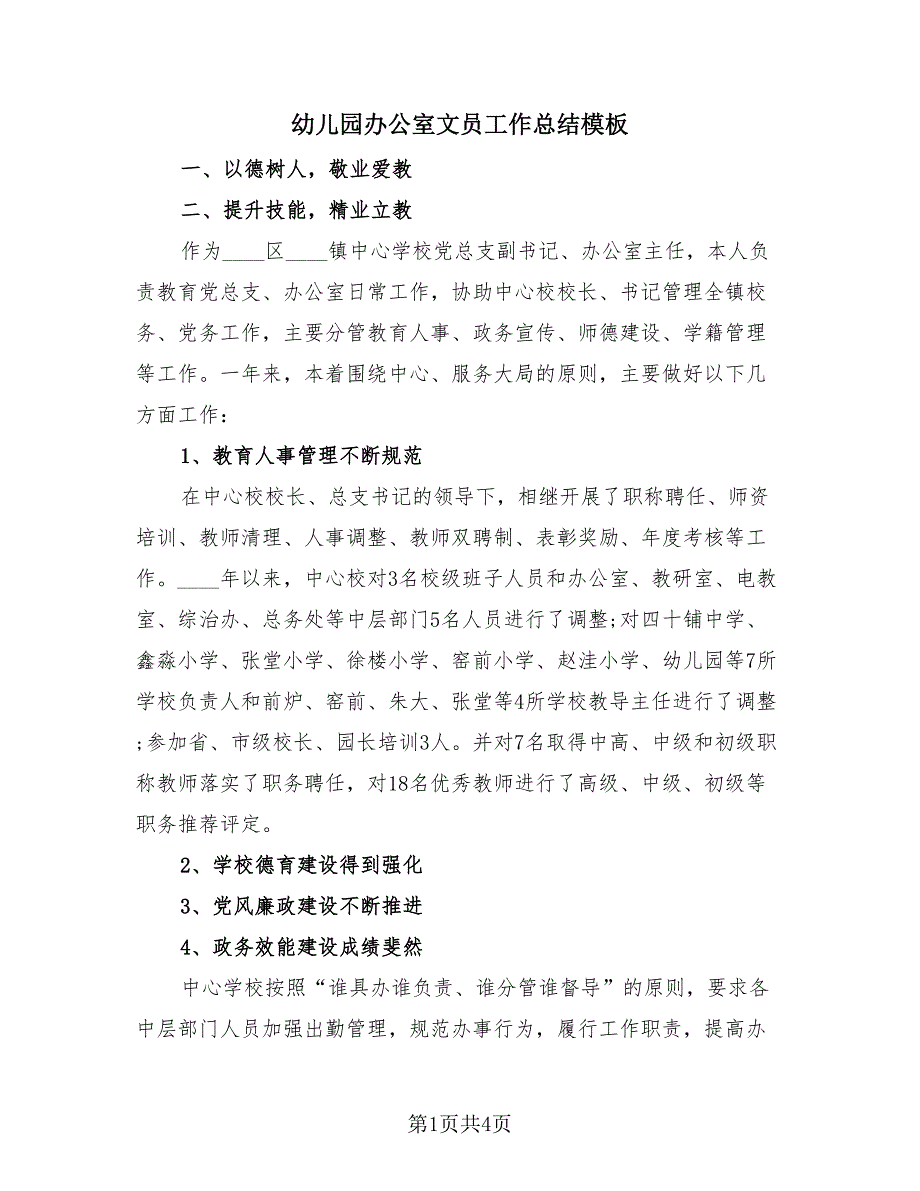 幼儿园办公室文员工作总结模板
一、以德树人，敬业爱教
二、提升技能，精业立教
作为____区____镇中心学校党总支副书记、办公室主任，本人负
责教育党总支、办公室日常工作，协助中心校校长、书记管理全镇校
务、党务工作，主要分管教育人事、政务宣传、师德建设、学籍管理
等工作。一年来，本着围绕中心、服务大局的原则，主要做好以下几
方面工作：
1、教育人事管理不断规范
在中心校校长、总支书记的领导下，相继开展了职称聘任、师资
培训、教师清理、人事调整、教师双聘制、表彰奖励、年度考核等工
作。____年以来，中心校对3名校级班子人员和办公室、教研室、电教
室、综治办、总务处等中层部门5名人员进行了调整;对四十铺中学、
鑫淼小学、张堂小学、徐楼小学、窑前小学、赵洼小学、幼儿园等7所
学校负责人和前炉、窑前、朱大、张堂等4所学校教导主任进行了调整
;参加省、市级校长、园长培训3人。并对7名取得中高、中级和初级职
称教师落实了职务聘任，对18名优秀教师进行了高级、中级、初级等
职务推荐评定。
2、学校德育建设得到强化
3、党风廉政建设不断推进
4、政务效能建设成绩斐然
中心学校按照“谁具办谁负责、谁分管谁督导”的原则，要求各
中层部门人员加强出勤管理，规范办事行为，履行工作职责，提高办
第1页共4页